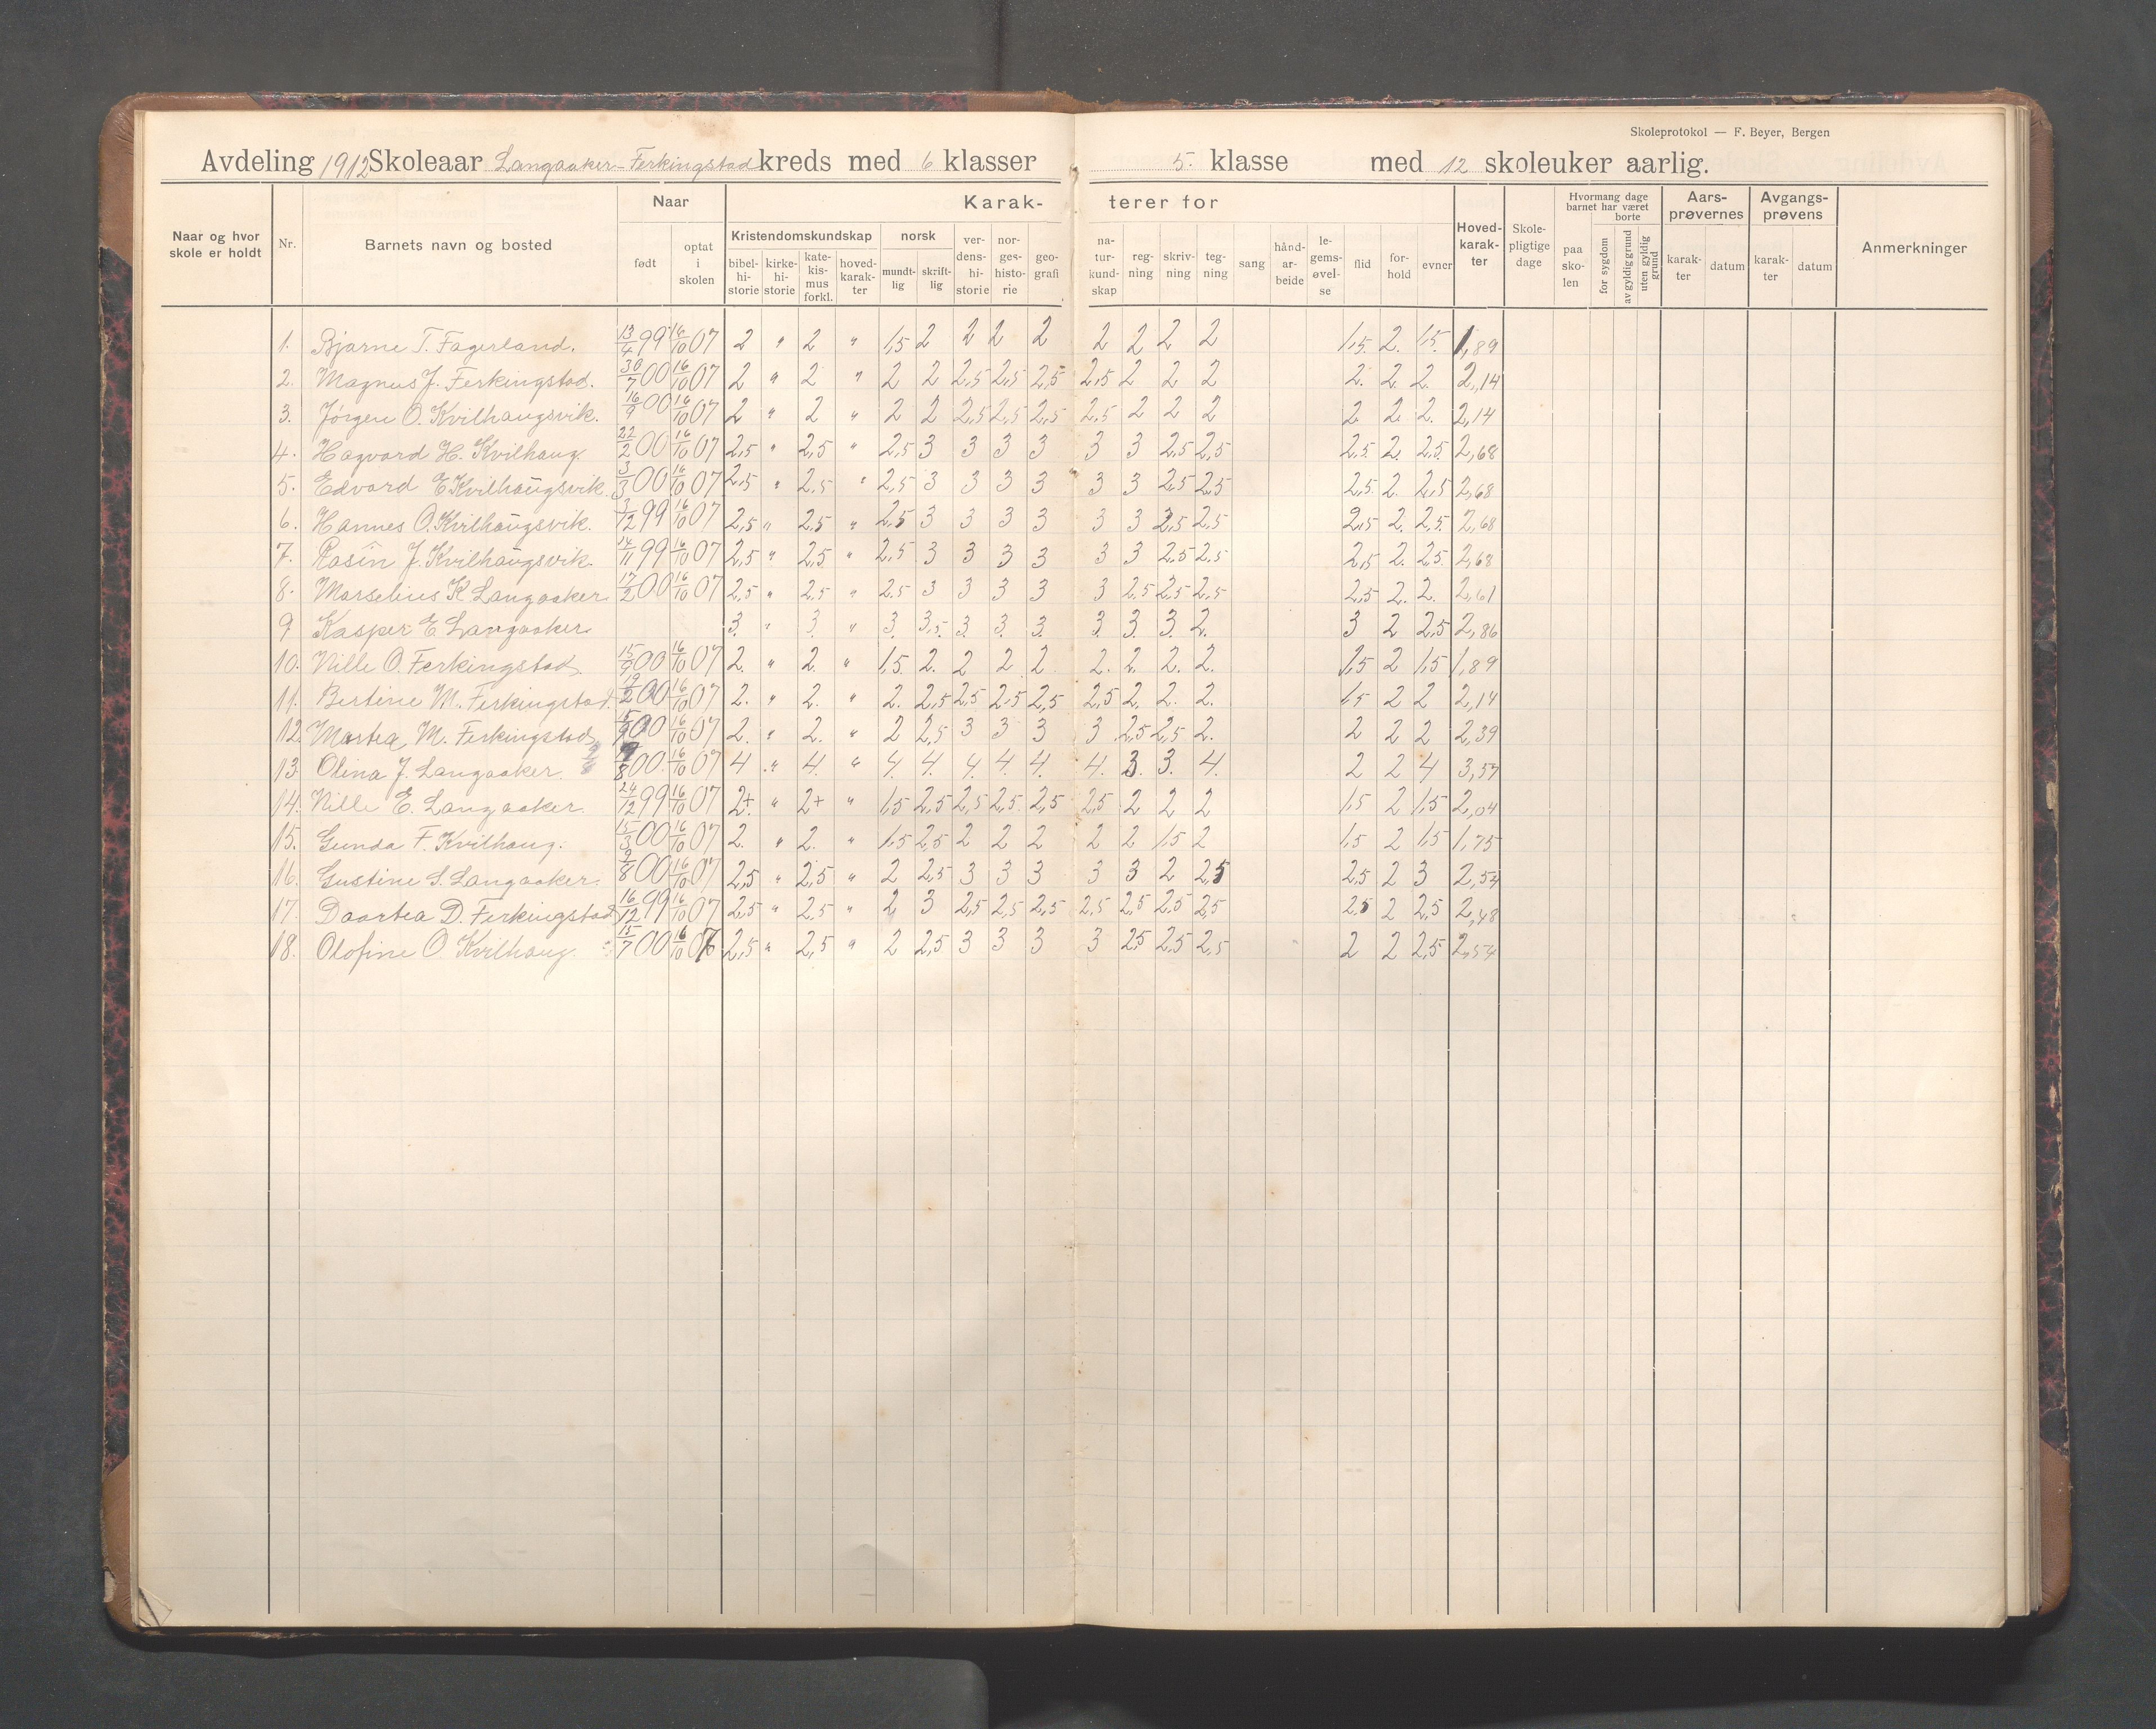 Skoleprotokol — F. Beyer, Bergen
Avdeling 1912 Skoleaar Langaaker-Ferkingstad kreds med 6 klasser 5. klasse med 12 skoleuker aarlig.
Naar og hvor skole er holdt
Nr.
Barnets navn og bosted
Naar
født
optat i skolen
Karak- terer for
Kristendomskundskap
bibel-hi-storie
kirke-hi-storie
kate-kis-mus forkl.
hoved-karak-ter
norsk
mundt-lig
skrift-lig
ver-dens-hi-storie
nor-ges-histo-rie
geo-grafi
na-tur-kund-skap
reg-ning
skriv-ning
teg-ning
sang
hånd-ar-beide
le-gems-øvel-se
flid
for-hold
evner
Hoved-karak-ter
Skole-pligtige dage
Hvormang dage barnet har været borte
paa sko-len
for sygdom
av gyldig grund
uten gyldig grund
Aars-prøvernes
karak-ter
datum
Avgangs-prøvens
karak-ter
datum
Anmerkninger
1. Bjarne T. Fagerland. 13/4 99 16/10 07 2 " 2 " 1,5 2 2 2 2 2 2 2 2 1,5. 2. 1,5. 1,89
2. Magnus J. Ferkingstad. 30/7 00 16/10 07 2 " 2 " 2 2 2,5 2,5 2,5 2,5 2 2 2 2. 2. 2. 2,14
3. Jørgen O. Kvilhaugsvik. 16/9 00 16/10 07 2 " 2 " 2 2 2,5 2,5 2,5 2,5 2 2 2 2 2. 2. 2,14
4. Hagvard H. Kvilhaug. 22/2 00 16/10 07 2,5 " 2,5 " 2,5 3 3 3 3 3 3 2,5 2,5 2,5. 2. 2,5. 2,68
5. Edvard E. Kvilhaugsvik. 3/3 00 16/10 07 2,5 " 2,5 " 2,5 3 3 3 3 3 3 2,5 2,5 2,5. 2. 2,5 2,68
6. Hannes O. Kvilhaugsvik. 3/12 99 16/10 07 2,5 " 2,5 " 2,5 3 3 3 3 3 3 2,5 2,5 2,5 2. 2,5. 2,68
7. Rasin J. Kvilhaugsvik. 14/11 99 16/10 07 2,5 " 2,5 " 2,5 3 3 3 3 3 3 2,5 2,5 2,5 2. 2,5. 2,68
8. Marselius K. Langaaker 17/2 00 16/10 07 2,5 " 2,5 " 2,5 3 3 3 3 3 2,5 2,5 2,5 2,5 2. 2. 2,61
9 Kasper E Langaaker 3. " 3. " 3. 3,5. 3. 3. 3. 3. 3. 3. 2. 3 2 2,5 2,86
10. Nille O. Ferkingstad 15/9 00 16/10 07 2. " 2. " 1,5. 2. 2 2 2 2. 2. 2. 2. 1,5 2 1,5 1,89
11. Bertine M. Ferkingstad. 19/2 00 16/10 07 2. " 2. " 2. 2,5 2,5 2,5 2,5 2,5 2. 2. 2. 1,5 2 2 2,14
12. Martea M. Ferkingstad 5/9 00 16/10 07 2. " 2. " 2 2,5 3 3 3 3 2,5 2,5 2. 2 2 2 2,39
13. Olina J. Langaaker. 00. 16/10 07 4 " 4. " 4. 4. 4. 4. 4. 4. 3. 3. 4. 2 2 4 3,57
14. Nille E. Langaaker. 24/12 99 16/10 07 2+ " 2+ " 1,5 2,5 2,5 2,5. 2,5 2,5 2 2 2 1,5 2 1,5 2,04
15. Gunda F. Kvilhaug. 15/3 00 16/10 07 2. " 2. " 1,5 2,5 2 2 2 2 2 1,5 2 1,5 2 1,5 1,75
16. Gustine S. Langaaker. 9/8 00 16/10 07 2,5 " 2,5 " 2 2,5 3 3 3 3 3 2 2,5 2,5 2 3 2,54
17. Daartea D. Ferkingstad 16/12 99 16/10 07 2,5 " 2,5 " 2 3 2,5 2,5 2,5 2,5 2,5 2,5 2,5 2,5 2 2,5 2,48
18. Olofine O. Kvilhaug 15/7 00 16/10 07 2,5 " 2,5 " 2 2,5 3 3 3 3 2,5 2,5 2,5 2 2 2,5 2,54